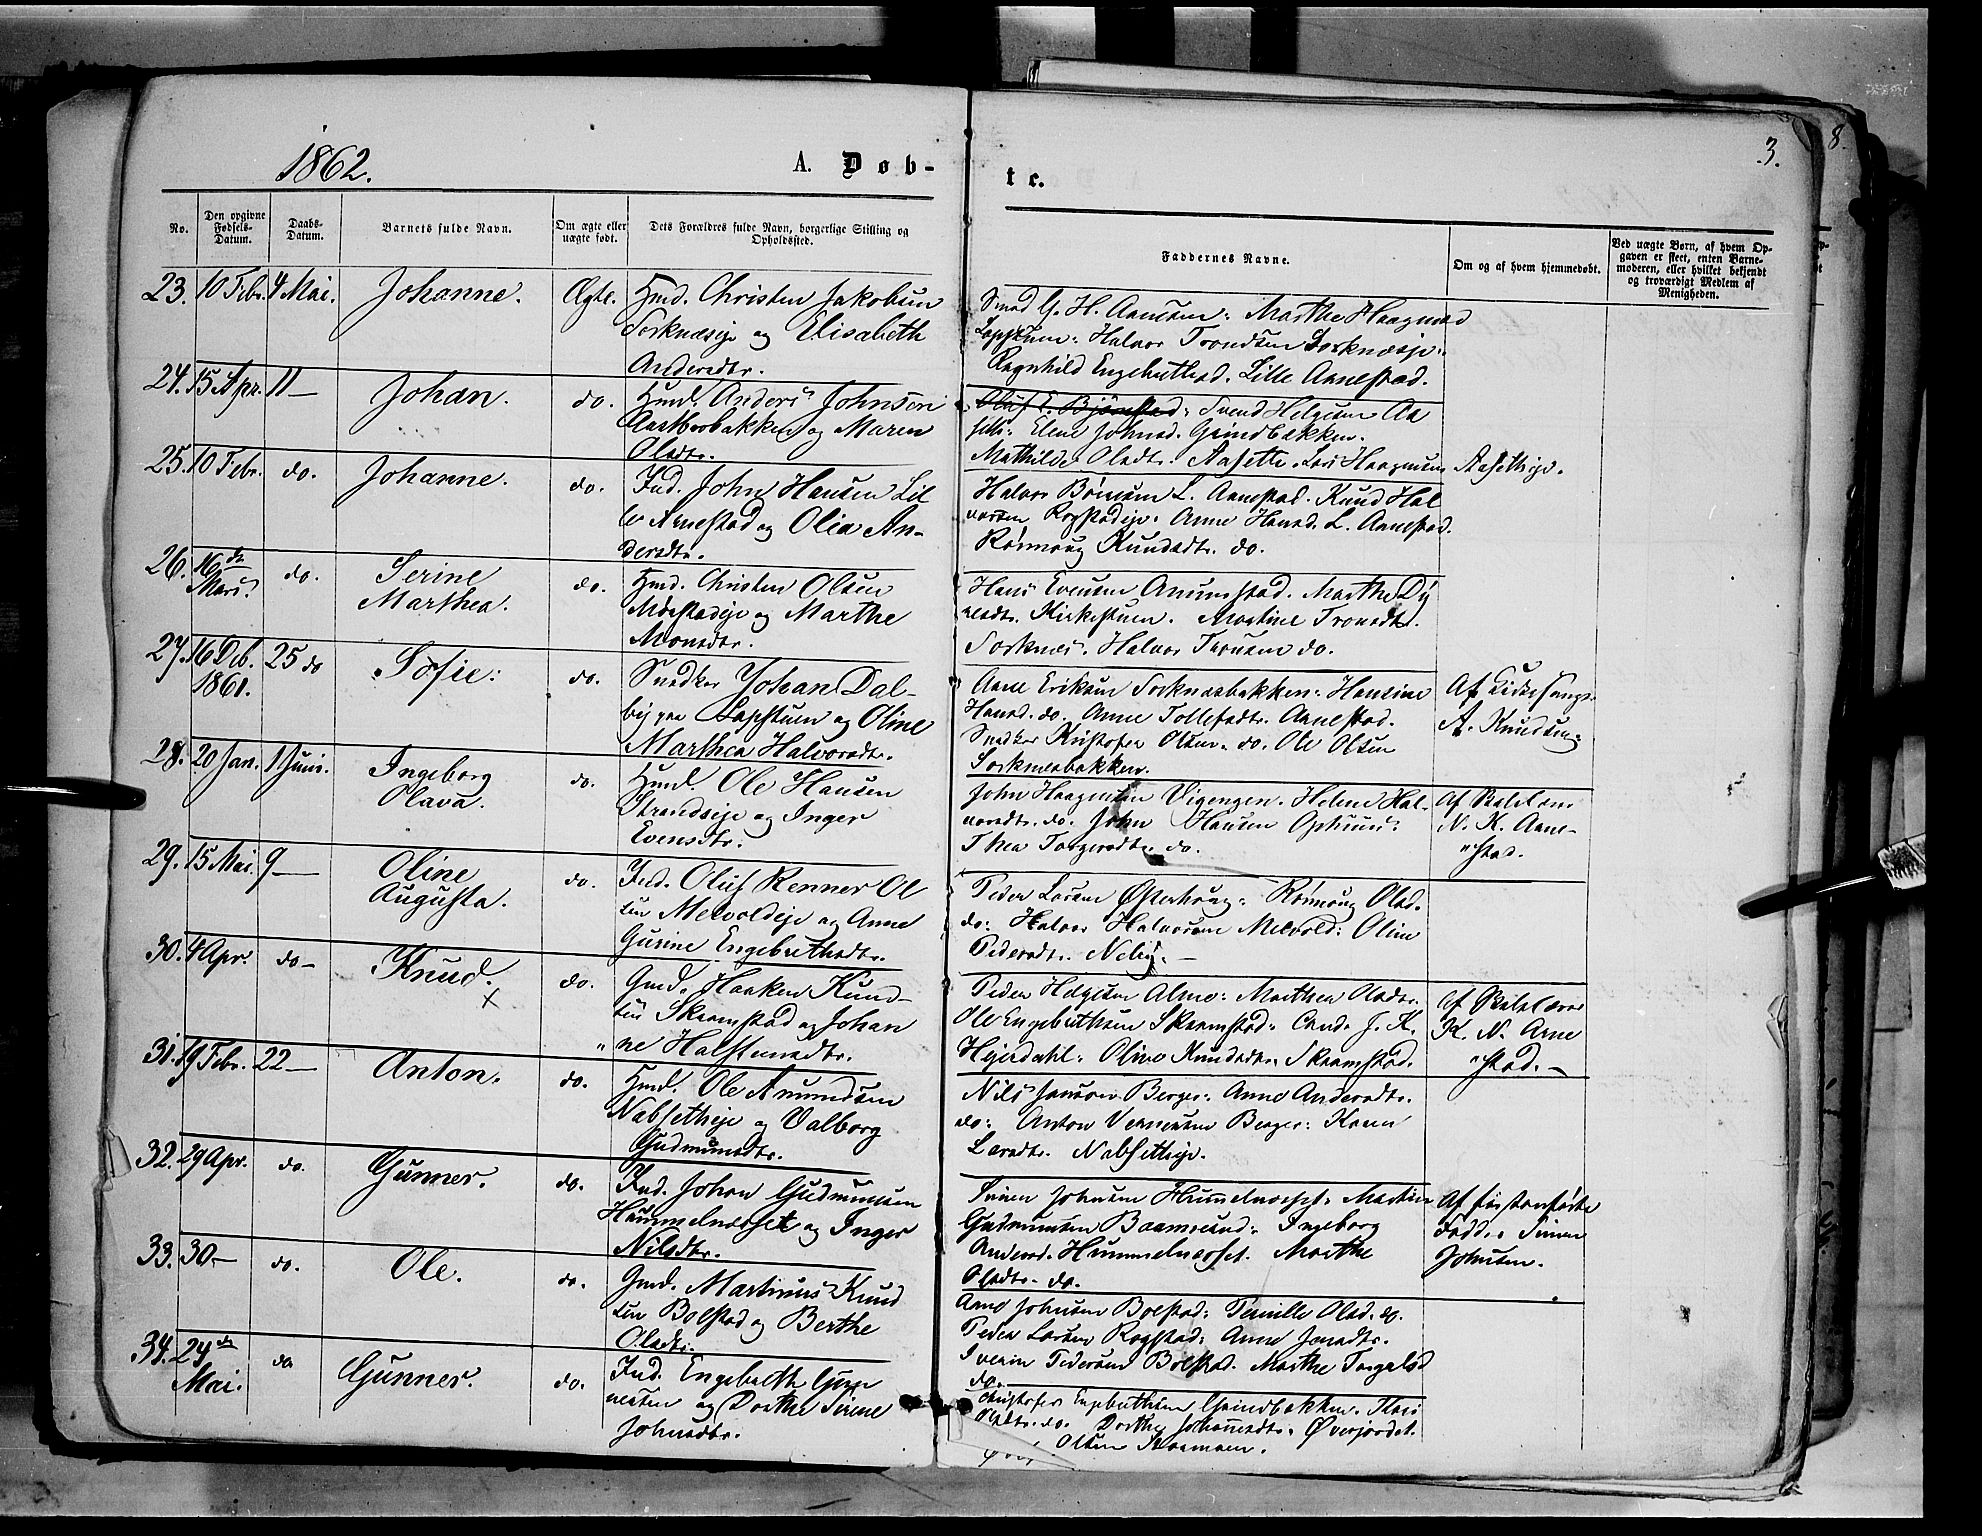 1862.
A. Døb-
te.
3.
8.
No.
Den opgivne Fødsels-Datum.
Daabs-Datum.
Barnets fulde Navn.
Om ægte eller uægte født.
Dets Forældres fulde Navn, borgerlige Stilling og Opholdssted.
Faddernes Navne.
Om og af hvem hjemmedøbt.
Ved uægte Børn, af hvem Op-
gaven er skeet, enten Barne-
moderen, eller hvilket bekjendt
og troværdigt Medlem af
Menigheden.
23. 10 Febr. 4 Mai. Johanne. Ægte. Hmd. Christen Jakobsen
Sorknæseje og Elisabeth
Andersdtr.
Smed G. H. Aamesen: Marthe Haagensd
Lapstuen: Halvor Trondsen Sorknæseje:
Ragnhild Engebrethsd. Lille Arnestad.
24. 15 Apr. 11 — Johan. do. Hmd. Anders Johnsen
bakken og Maren
Olsdtr.
Oluf E. Bjørnstad: Svend Helgesen Aa
seth: Elene Johnsd. Grindbakken.
Mathilde Olsdtr. Aaseth. Lars Haagensen
Aasetheje.
25. 10 Febr. do. Johanne. do. Ind. John Hansen Lil
le Arnestad og Olia An-
dersdtr.
Halvor Bønsen L. Arnestad. Knud Hal
vorsen Rogstadeje. Anne Hansd. L. Arnestad.
Rønnoug Knudsdtr. do.
26. 16de Marts. do. Serine
Marthea. do. Hmd. Christen Olsen
Moestadeje og Marthe
Monsdtr.
Hans Evensen Arnestad. Marthe Dy
resdtr. Kirkestuen. Martine Tronsdtr.
Sorknes. Halvor Tronsen do.
27. 16 Deb. 1861. 25 do Sofie: do. Snedker Johan Dal-
by paa Lapstuen og Oline
Marthea Halvorsdtr.
Arne Eriksen Sorknæsbakken: Hansine
Hansd. do. Anne Tollefsdtr. Arnestad.
Snedker Kristofer Olsen. do. Ole Olsen
Sorknæsbakken.
Af Kirkesanger
A. Knudsen.
28. 20 Jan. 1 Juni. Ingeborg
Olava. do. Hmd. Ole Hansen
Strandseje og Inger
Evensdtr.
John Haagensen Vigengen. Helene Hal-
vorsdtr. do. John Hansen Ophuus:
Thea Torgersdtr. do.
Af Skolelærer
N. K. Arne-
"stad.
29. 15 Mai. 9 — Oline
Augusta. do. Ind. Oluf Renner Ol
sen Melvoldeje og Anne
Gurine Engebrethsdtr.
Peder Larsen Østerhaug: Rønnoug Olsd.
do: Halvor Halvorsen Melvold: Oline
Pedersdtr. Neby. —
30. 4 Apr. do — Knud.
× do. Gmd. Haaken Knud-
sen Skramstad og Johan
"ne Halstensdtr.
Peder Helgesen Almo: Marthea Olsdtr.
Ole Engebrethsen Skramstad: Cand. J. K.
Hejerdahl: Oline Knudsdtr. Skramstad.
Af Skolelærer
K. N. Arne
"stad. —
31. 19 Febr. 22 — Anton. do. Hmd. Ole Amundsen
Nabsetheje og Valborg
Gudmunsdtr.
Nils Jansen Berger: Anne Andersdtr.
do: Anton Vernersen Berger: Karen
Larsdtr. Nabsetheje.
32. 29 Apr. do. Gunner. do. Ind. Johan Gudmunsen
Hummelnæsset og Inger
Nilsdtr.
Simen Johnsen Hummelnæsset: Martin
Gudmunsen Baamsrud: Ingeborg
Andersd. Hummelnæsset. Marthe
Olsdtr. do.
Af førstanførte
Fadder Simen
Johnsen.
33. 30 — do. Ole. do. Gmd. Martinus Knud
sen Bolstad og Berthe
Olsdtr.
Arne Johnsen Bolstad: Pernille Olsd. do.
Peder Larsen Rogstad: Anne Jonsdtr.
Iverin Pedersen Bolstad. Marthe Torgalsd
do.
34. 24de Mai. do. Gunner. do. Ind. Engebreth Gun
nersen og Dorthe Sirene
Johnsdtr.
Christofer Engebrethsen Grindbakken. Kari
Olsdtr. do. Dorthe Johannesdtr. Øverjordet.
Olsen